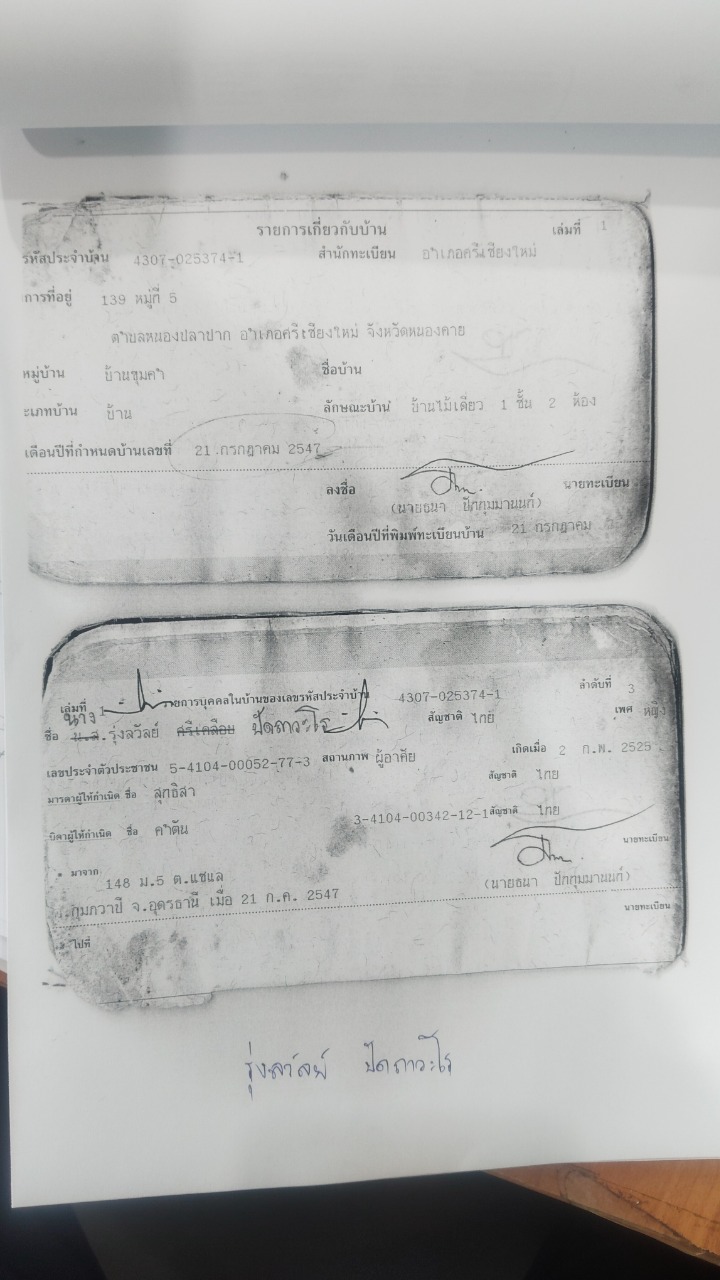 รายการเกี่ยวกับบ้าน เล่มที่ 1
รหัสประจำบ้าน 4307-025374-1 สำนักทะเบียน อำเภอศรีเชียงใหม่
การที่อยู่ 139 หมู่ที่ 5
ตำบลหนองปลาปาก อำเภอศรีเชียงใหม่ จังหวัดหนองคาย
หมู่บ้าน ชื่อบ้าน
ะเภทบ้าน บ้าน ลักษณะบ้าน บ้านไม้เดี่ยว 1 ชั้น 2 ห้อง
เดือนปีที่กำหนดบ้านเลขที่ 21 กรกฎาคม 2547
ลงชื่อ นายทะเบียน
(นายธนา ปักกุมมานนท์)
วันเดือนปีที่พิมพ์ทะเบียนบ้าน 21 กรกฎาคม
เล่มที่ 1 รายการบุคคลในบ้านของเลขรหัสประจำบ้าน 4307-025374-1 ลำดับที่ 3
นาง
ชื่อ น.ส.รุ่งลวัลย์ ศรีเคลือบ ปัดถาวะโร สัญชาติ ไทย เพศ หญิง
เลขประจำตัวประชาชน 5-4104-00052-77-3 สถานภาพ ผู้อาศัย เกิดเมื่อ 2 ก.พ. 2525
มารดาผู้ให้กำเนิด ชื่อ สุทธิสา สัญชาติ ไทย
บิดาผู้ให้กำเนิด ชื่อ คำตัน 3-4104-00342-12-1 สัญชาติ ไทย
มาจาก นายทะเบียน
148 ม.5 ต.แชแล (นายธนา ปักกุมมานนท์)
กุมภวาปี จ.อุดรธานี เมื่อ 21 ก.ค. 2547
ไปที่ นายทะเบียน
รุ่งลวัลย์ ปัดถาวะโร